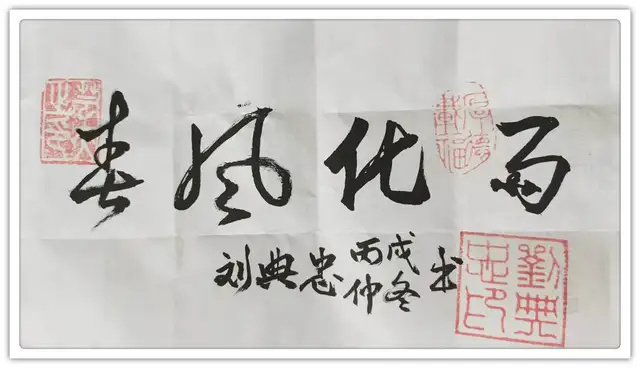 春风化雨
刘典忠 丙戌仲冬 书
劉典忠印
厚德載福